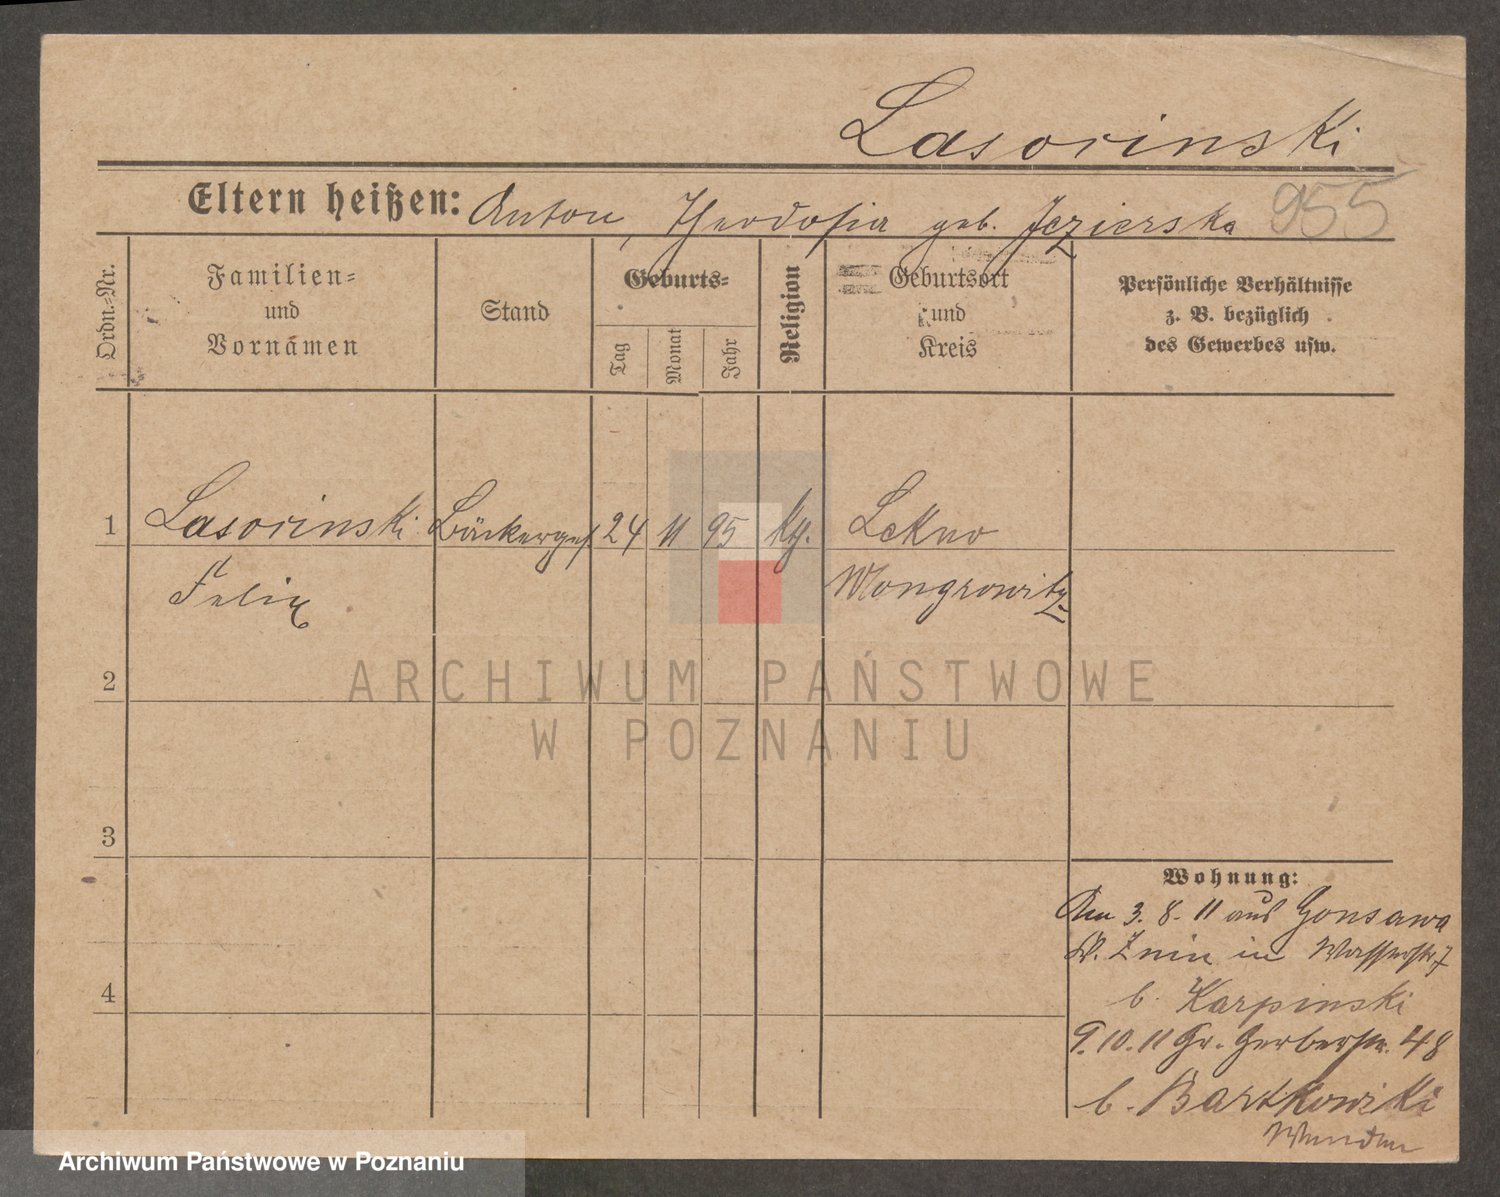 Lasorinski
Eltern heißen: Anton, Theodosia geb. Jezierska 955
Ordn.-Nr.
Familien-
und
Vornamen
Stand
Geburts-
Tag
Monat
Jahr
Religion
Geburtsort
und
Kreis
Persönliche Verhältnisse
z. B. bezüglich
des Gewerbes usw.
1 Lasorinski Bäckerges. 24 11 95 Kth. Lekno
Felix Wongrowitz
2
ARCHIWUM PAŃSTWOWE
W POZNANIU
3
4
Wohnung:
Am 3. 8. 11 aus Gonsawa
Kr. Znin in Wasserstr 7
b. Karpinski
9. 10. 11 Gr. Gerberstr. 48
b. Bartkowski
Archiwum Państwowe w Poznaniu